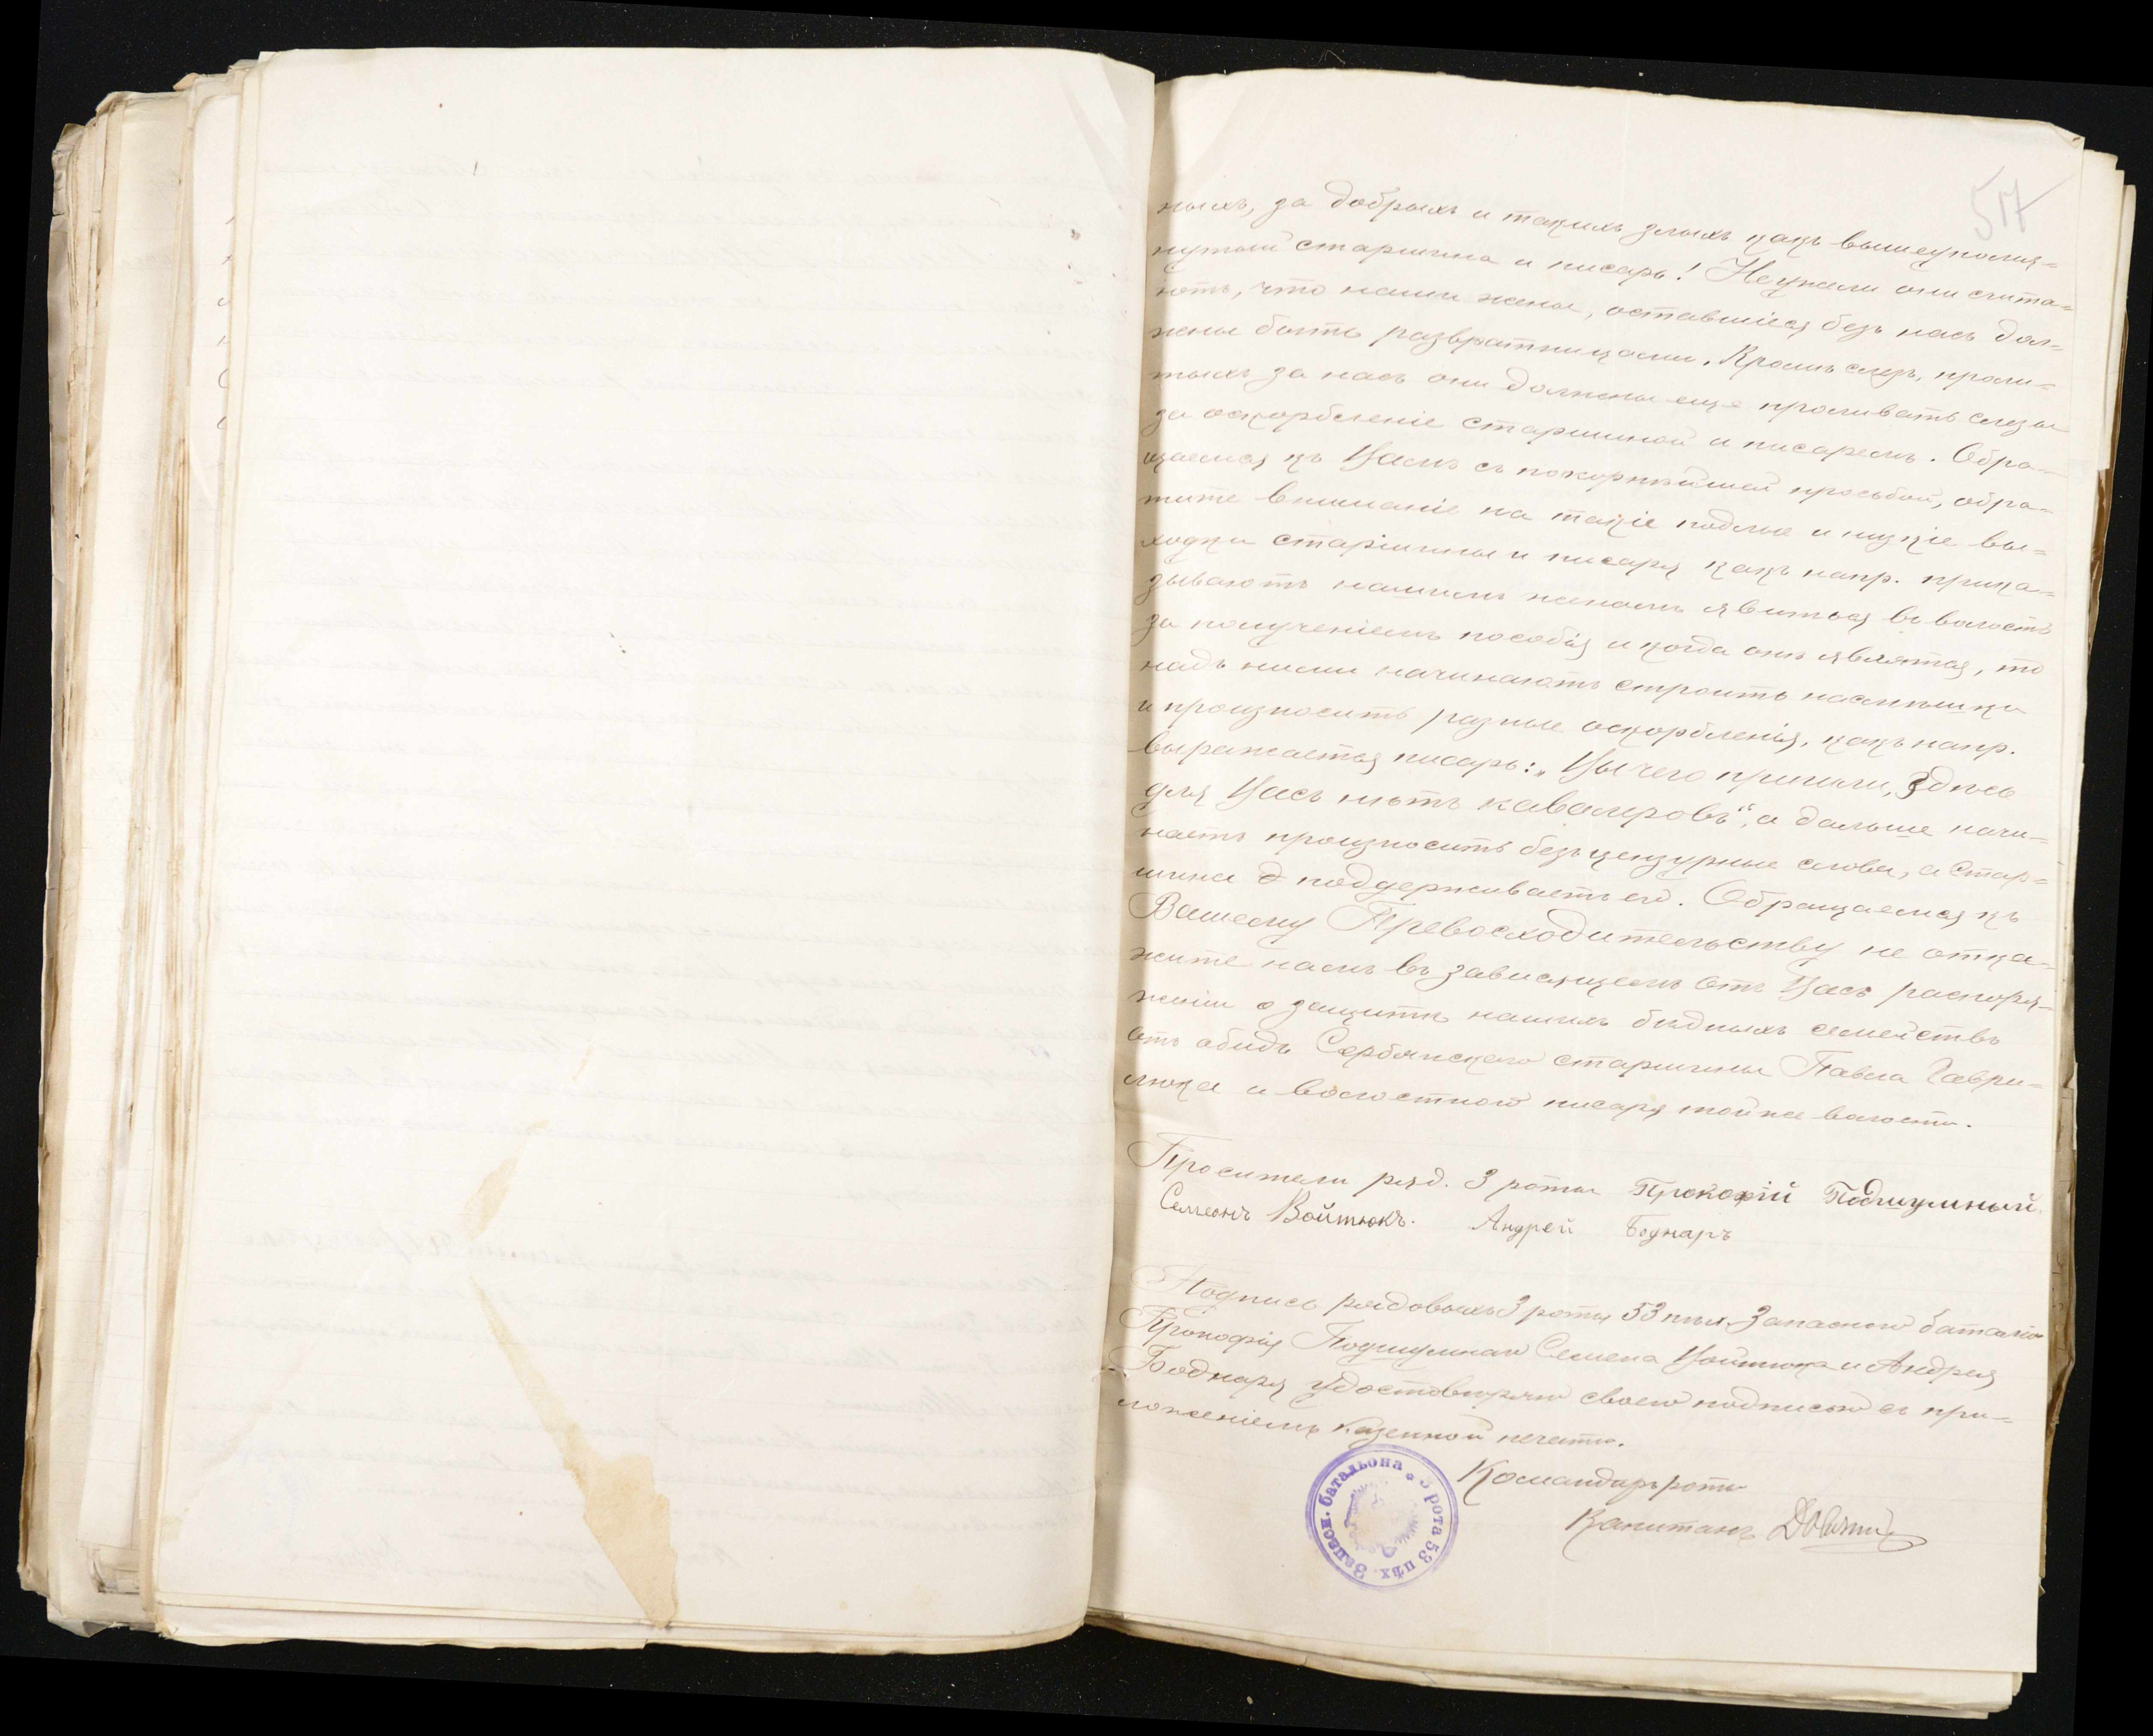 517
ныхъ, за добрыхъ и такихъ злыхъ какъ вышеупомя=
нутый старшина и писарь! Неужели они счита=
ютъ, что наши жены, оставшіяся безъ насъ дол=
жны быть развратницами. Кромѣ слезъ, проли=
тыхъ за насъ они должны еще проливать слезы
за оскорбленіе старшиной и писаремъ. Обра=
щаемся къ Вамъ съ покорнѣйшей просьбой, обра=
тите вниманіе на такіе подлые и низкіе вы=
ходки старшины и писаря какъ напр. прика=
зываютъ нашимъ женамъ явиться въ волость
за полученіемъ пособія и когда онѣ являтся, то
надъ ними начинаютъ строить насмѣшки
и произносить разные оскорбленія, какъ напр.
выражается писарь: „Вы чего пришли, здѣсь
для Васъ нѣтъ кавалеровъ“, а дальше начи=
наетъ произносить безъцензурные слова, а стар=
шина поддерживаетъ его. Обращаемся къ
Вашему Превосходительству не отка=
жите намъ въ зависящемъ отъ Васъ распоря=
женіи о защитѣ нашихъ бѣдныхъ семействъ
отъ обидъ Сербянскаго старшины Павла Гаври=
люка и волостного писаря той же волости.
Просители ряд. 3 роты Прокофій Подшумный
Семеонъ Войтюкъ. Андрей Боднаръ
Подпись рядовыхъ 3 роты 53 пѣх. Запасного баталіо
Прокофія Подшумнаго Семена Войтюка и Андрея
Боднаря удостовѣряю своею подписью съ при=
ложеніемъ казенной печати.
Командиръ роты
Капитанъ
3 рота 53 пѣх. Запасн. батальона